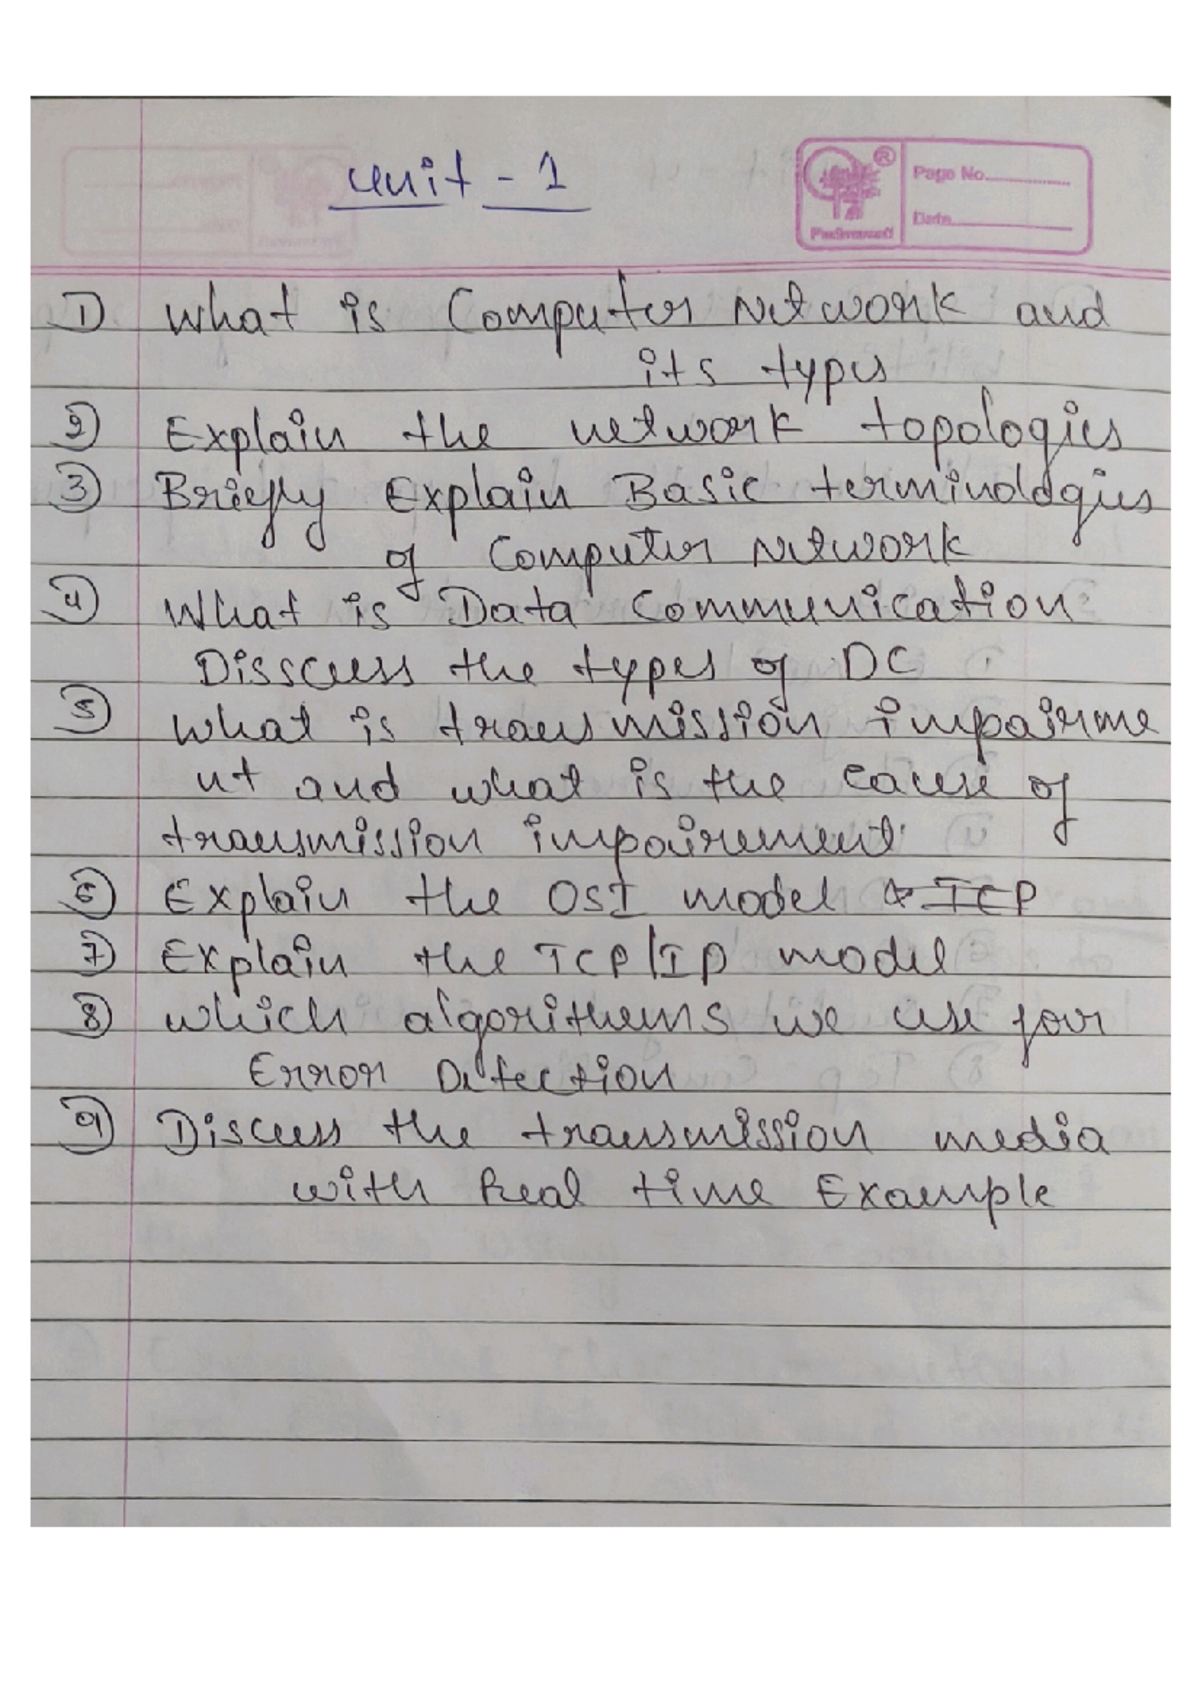 Unit - 1
Page No.
Date
1) What is Computer Network and
its types
2) Explain the network topologies
3) Briefly Explain Basic terminologies
of Computer Network
4) What is Data Communication
Disscuss the types of DC
5) What is transmission impairme
nt and what is the cause of
transmission impairement
6) Explain the OSI model & TCP
7) Explain the TCP/IP model
8) which algorithems we use for
Error Detection
9) Discuss the transmission media
with Real time Example